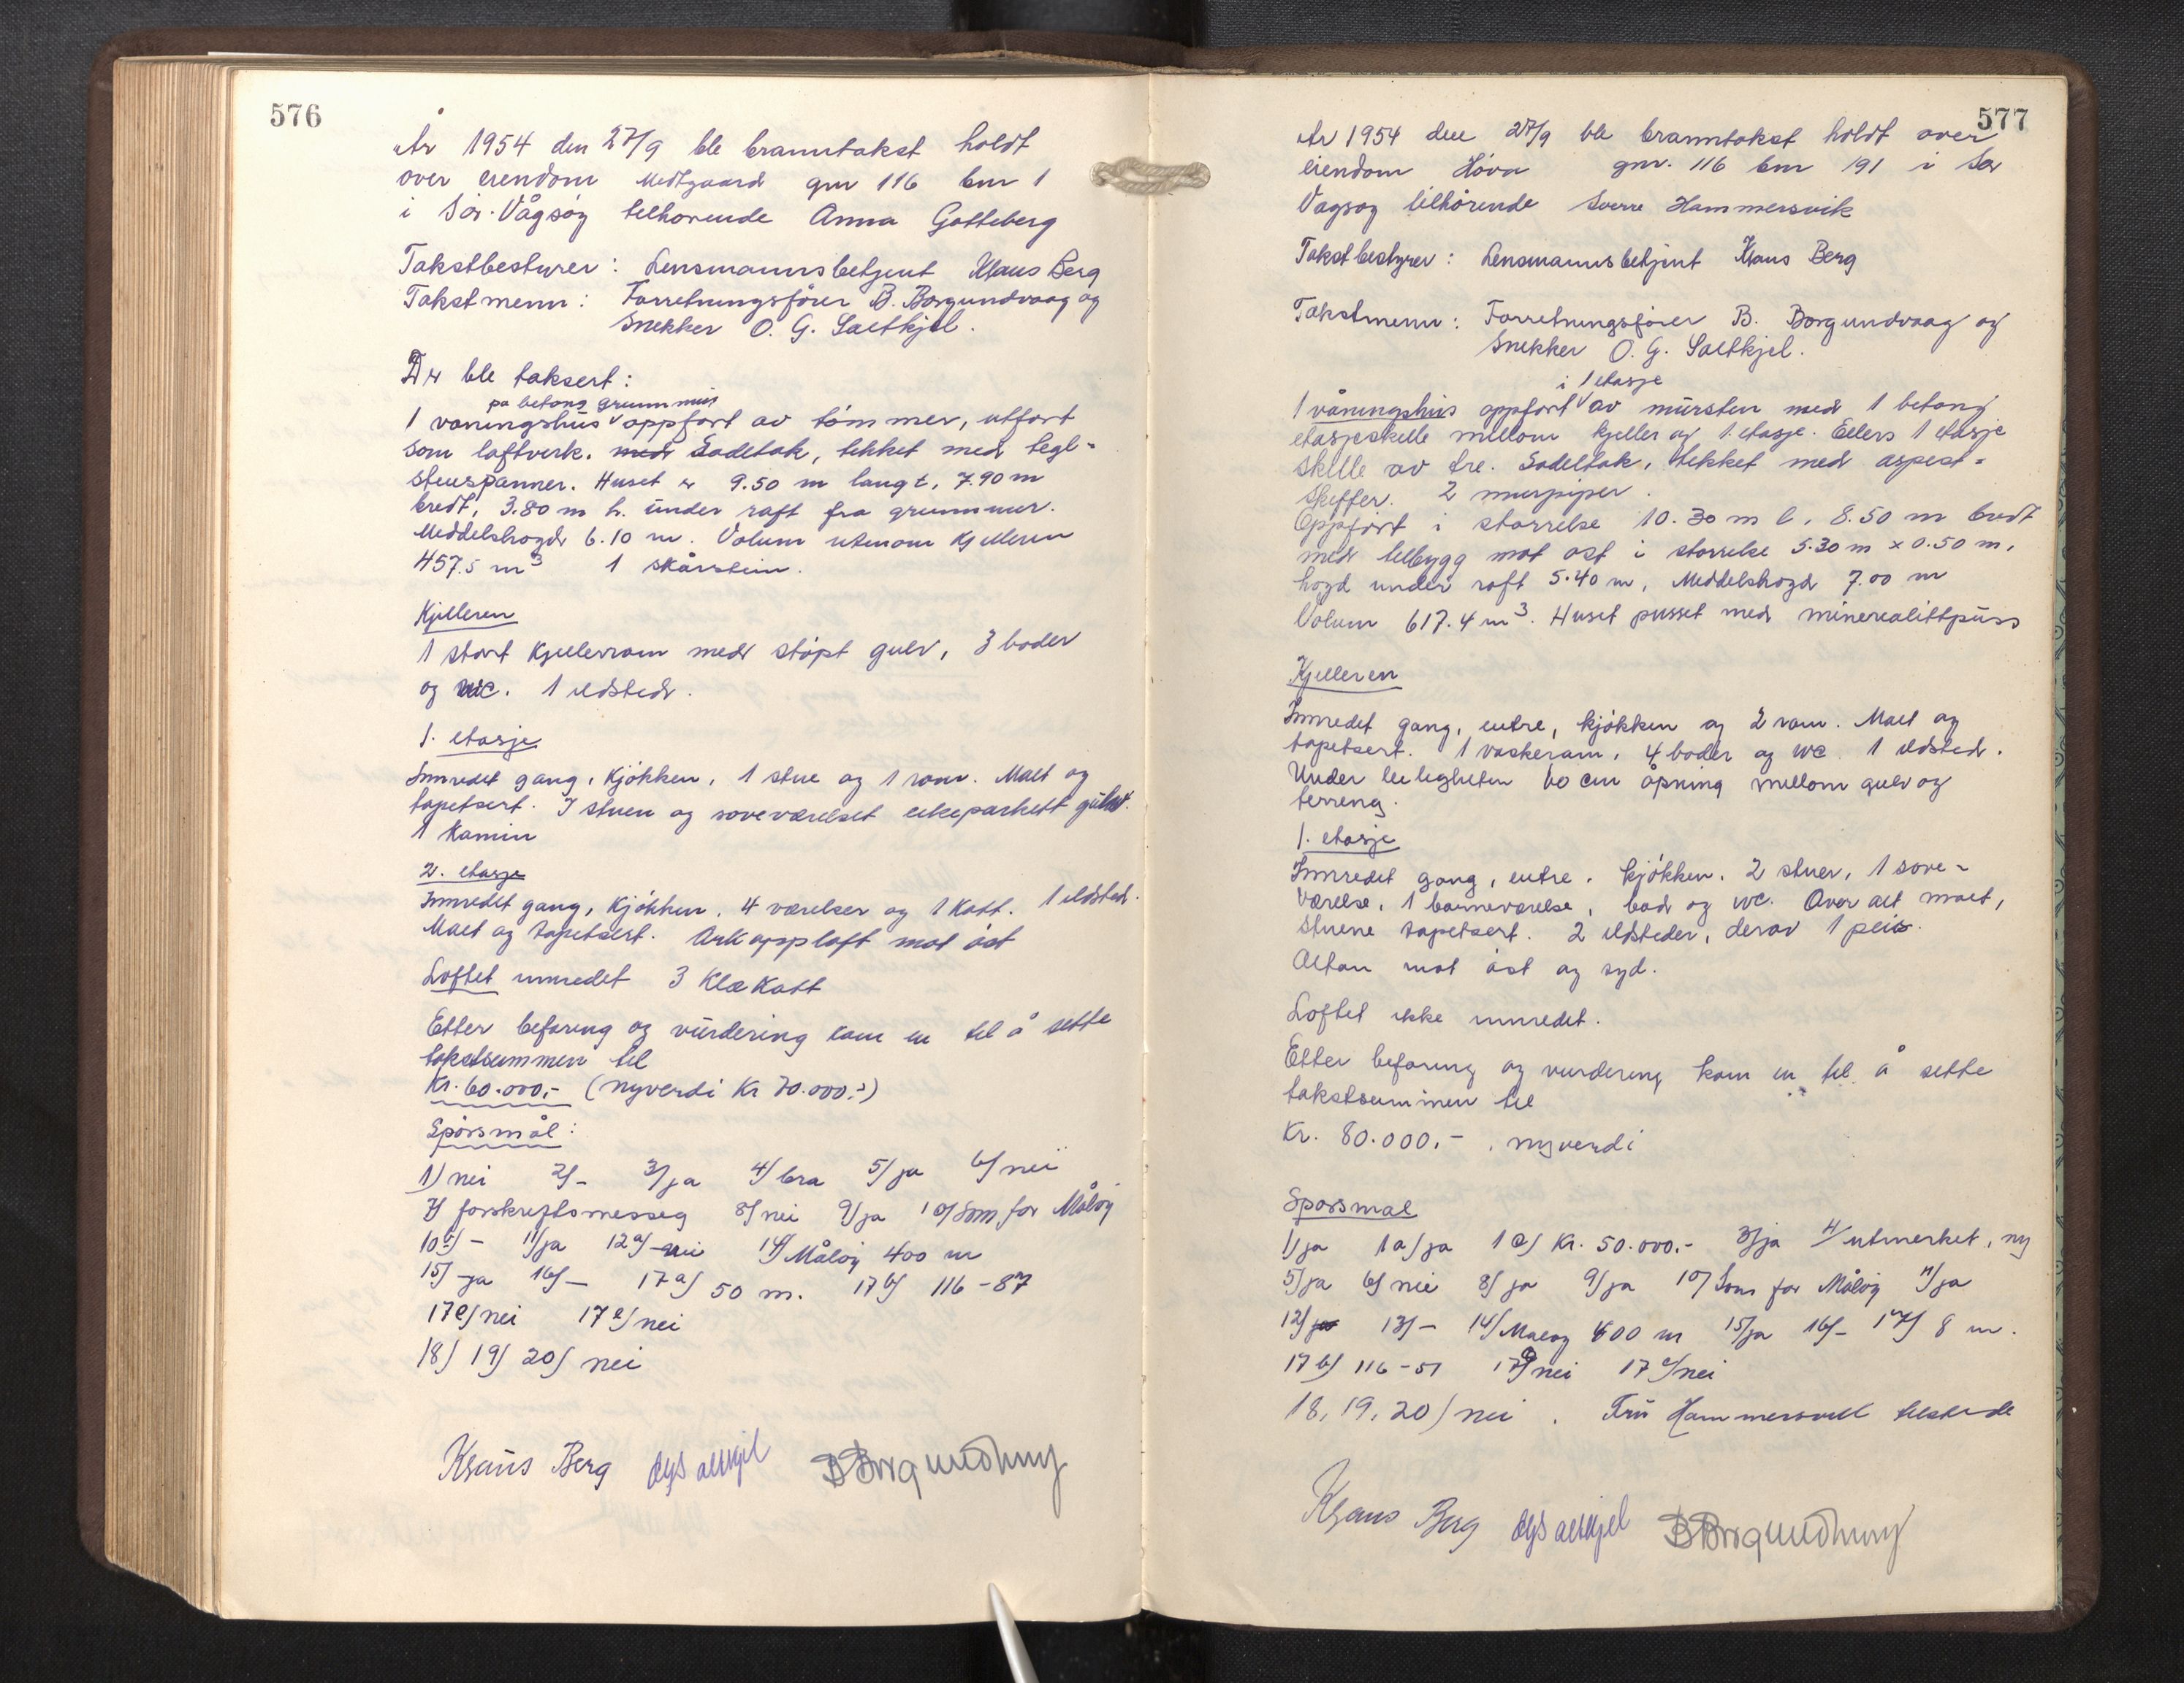 576
År 1954 den 27/9 ble branntakst holdt
over eiendom Medtgaard gnr 116 bnr 1
i Sør-Vågsøy tilhørende Anna Gotteberg
Takstbestyrer: Lensmannsbetjent Klaus Berg
Takstmenn: Forretningsfører B. Borgundvaag og
Snekker O. G. Saltkjel.
Der ble taksert:
på betong grunnmur
1 våningshus oppført av tømmer, utført
som laftverk. med Sadeltak, tekket med tegl-
stenspanner. Huset er 9.50 m langt, 7.90 m
bredt, 3.80 m h. under raft fra grunnmur.
Meddelshøgd 6.10 m. Volum utenom kjelleren
457.5 m³ 1 skårstein.
Kjelleren
1 stort kjellerrom med støpt gulv, 3 boder
og wc. 1 ildsted.
1. etasje
Innredet gang, kjøkken, 1 stue og 1 rom. Malt og
tapetsert. I stuen og soveværelset eikeparkett gulv.
1 kamin
2. etasje
Innredet gang, kjøkken, 4 værelser og 1 kott. 1 ildsted.
Malt og tapetsert. Ark oppløft mot øst
Loftet innredet 3 klækott
Etter befaring og vurdering kom en til å sette
takstsummen til
Kr. 60.000,- (nyverdi Kr 70.000:-)
Spørsmål:
1) nei 2/- 3/ja 4/bra 5/ja 6/nei
7/ forskriftsmesseg 8/nei 9/ja 10/Som for Måløy
11/ja 14/Måløy 400 m
15/ja 16/- 17a/ 50 m. 17b/ 116-87
17c/nei 17e/nei
18/ 19/ 20/ nei
Klaus Berg OGSaltkjel BBorgundvaag
577
År 1954 den 27/9 ble branntakst holdt over
eiendom Hóva gnr. 116 bnr 191 i Sør
Vågsøy tilhørende Sverre Hammersvik
Takstbestyrer: Lensmannsbetjent Klaus Berg
Takstmenn: Forretningsfører B. Borgundvaag og
Snekker O. G. Saltkjel.
i 1 etasje
1 våningshus oppført av mursten med 1 betong
etasjeskille mellom kjeller og 1. etasje. Ellers 1 etasje
skille av tre. Sadeltak, tekket med aspest-
skiffer. 2 murpiper.
Oppført i størrelse 10.30 m l, 8.50 m bredt
med tilbygg mot øst i størrelse 5.30 m x 0.50 m,
høgd under raft 5.40 m, Meddelshøgd 7.00 m
Volum 617.4 m³. Huset pusset med minerealittpuss
Kjelleren
Innredet gang, entre, kjøkken og 2 rom. Malt og
tapetsert. 1 vaskerom, 4 boder og wc 1 ildsted.
Under leiligheten 60 cm åpning mellom gulv og
terreng.
1. etasje
Innredet gang, entre, kjøkken, 2 stuer, 1 sove-
værelse, 1 barneværelse, bad og wc. Over alt malt,
stuene tapetsert. 2 ildsteder, derav 1 peis.
Altan mot øst og syd.
Loftet ikke innredet.
Etter befaring og vurdering kom en til å sette
takstsummen til
Kr. 80.000.- , nyverdi
Spørsmål
1/ja 1a/ja 1e/ Kr. 50.000.- 3/ja 4/utmerket, ny
5/ja 6/nei 8/ja 9/ja 10/Som for Måløy 11/ja
12/ja 13/- 14/Måløy 400 m 15/ja 16/- 17/ 8 m.
17b/ 116-51 nei 17e/nei
18, 19, 20/ nei. Fru Hammersvik tilstede
Klaus Berg OGSaltkjel BBorgundvaag